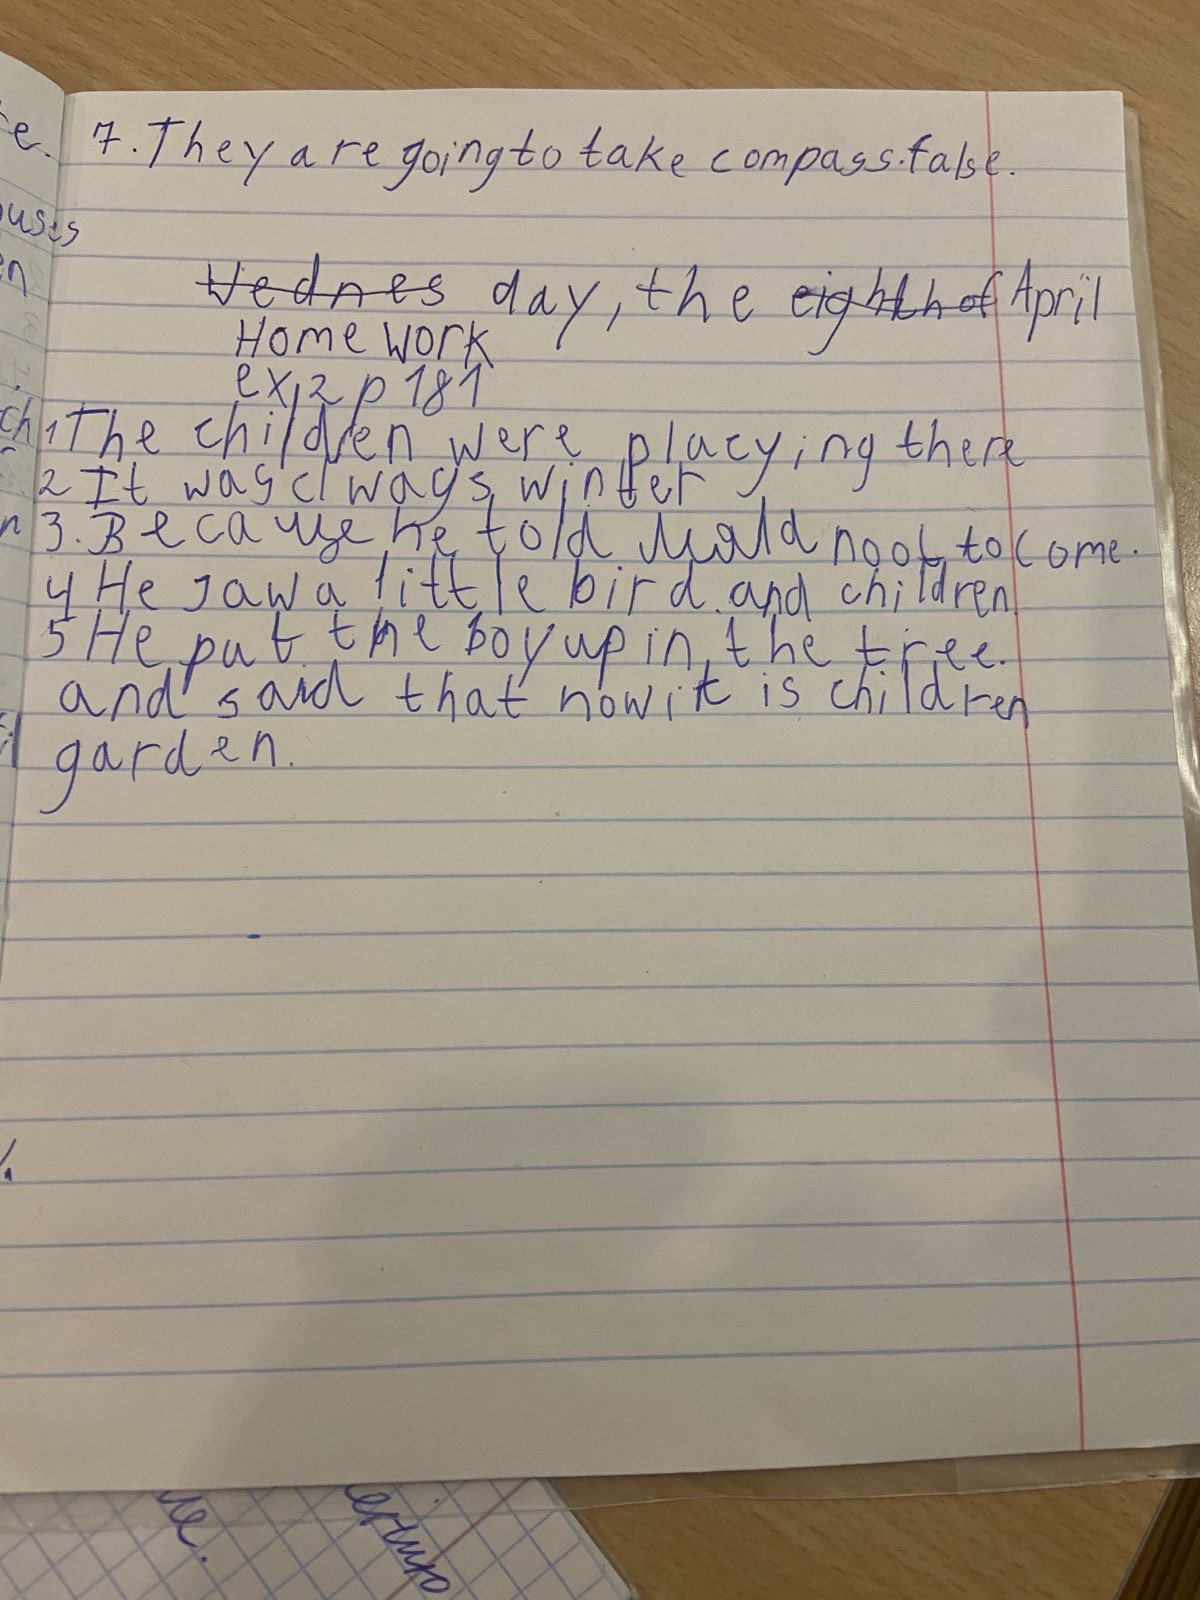 7. They are going to take compass. false.
Wednes day, the eighth of April
Home work
ex, 2 p 181
1 The children were placying there
2 It was always winter
3. Because he told noot to come.
4 He saw a little bird. and children
5 He put the boy up in the tree.
and said that now it is children
garden.